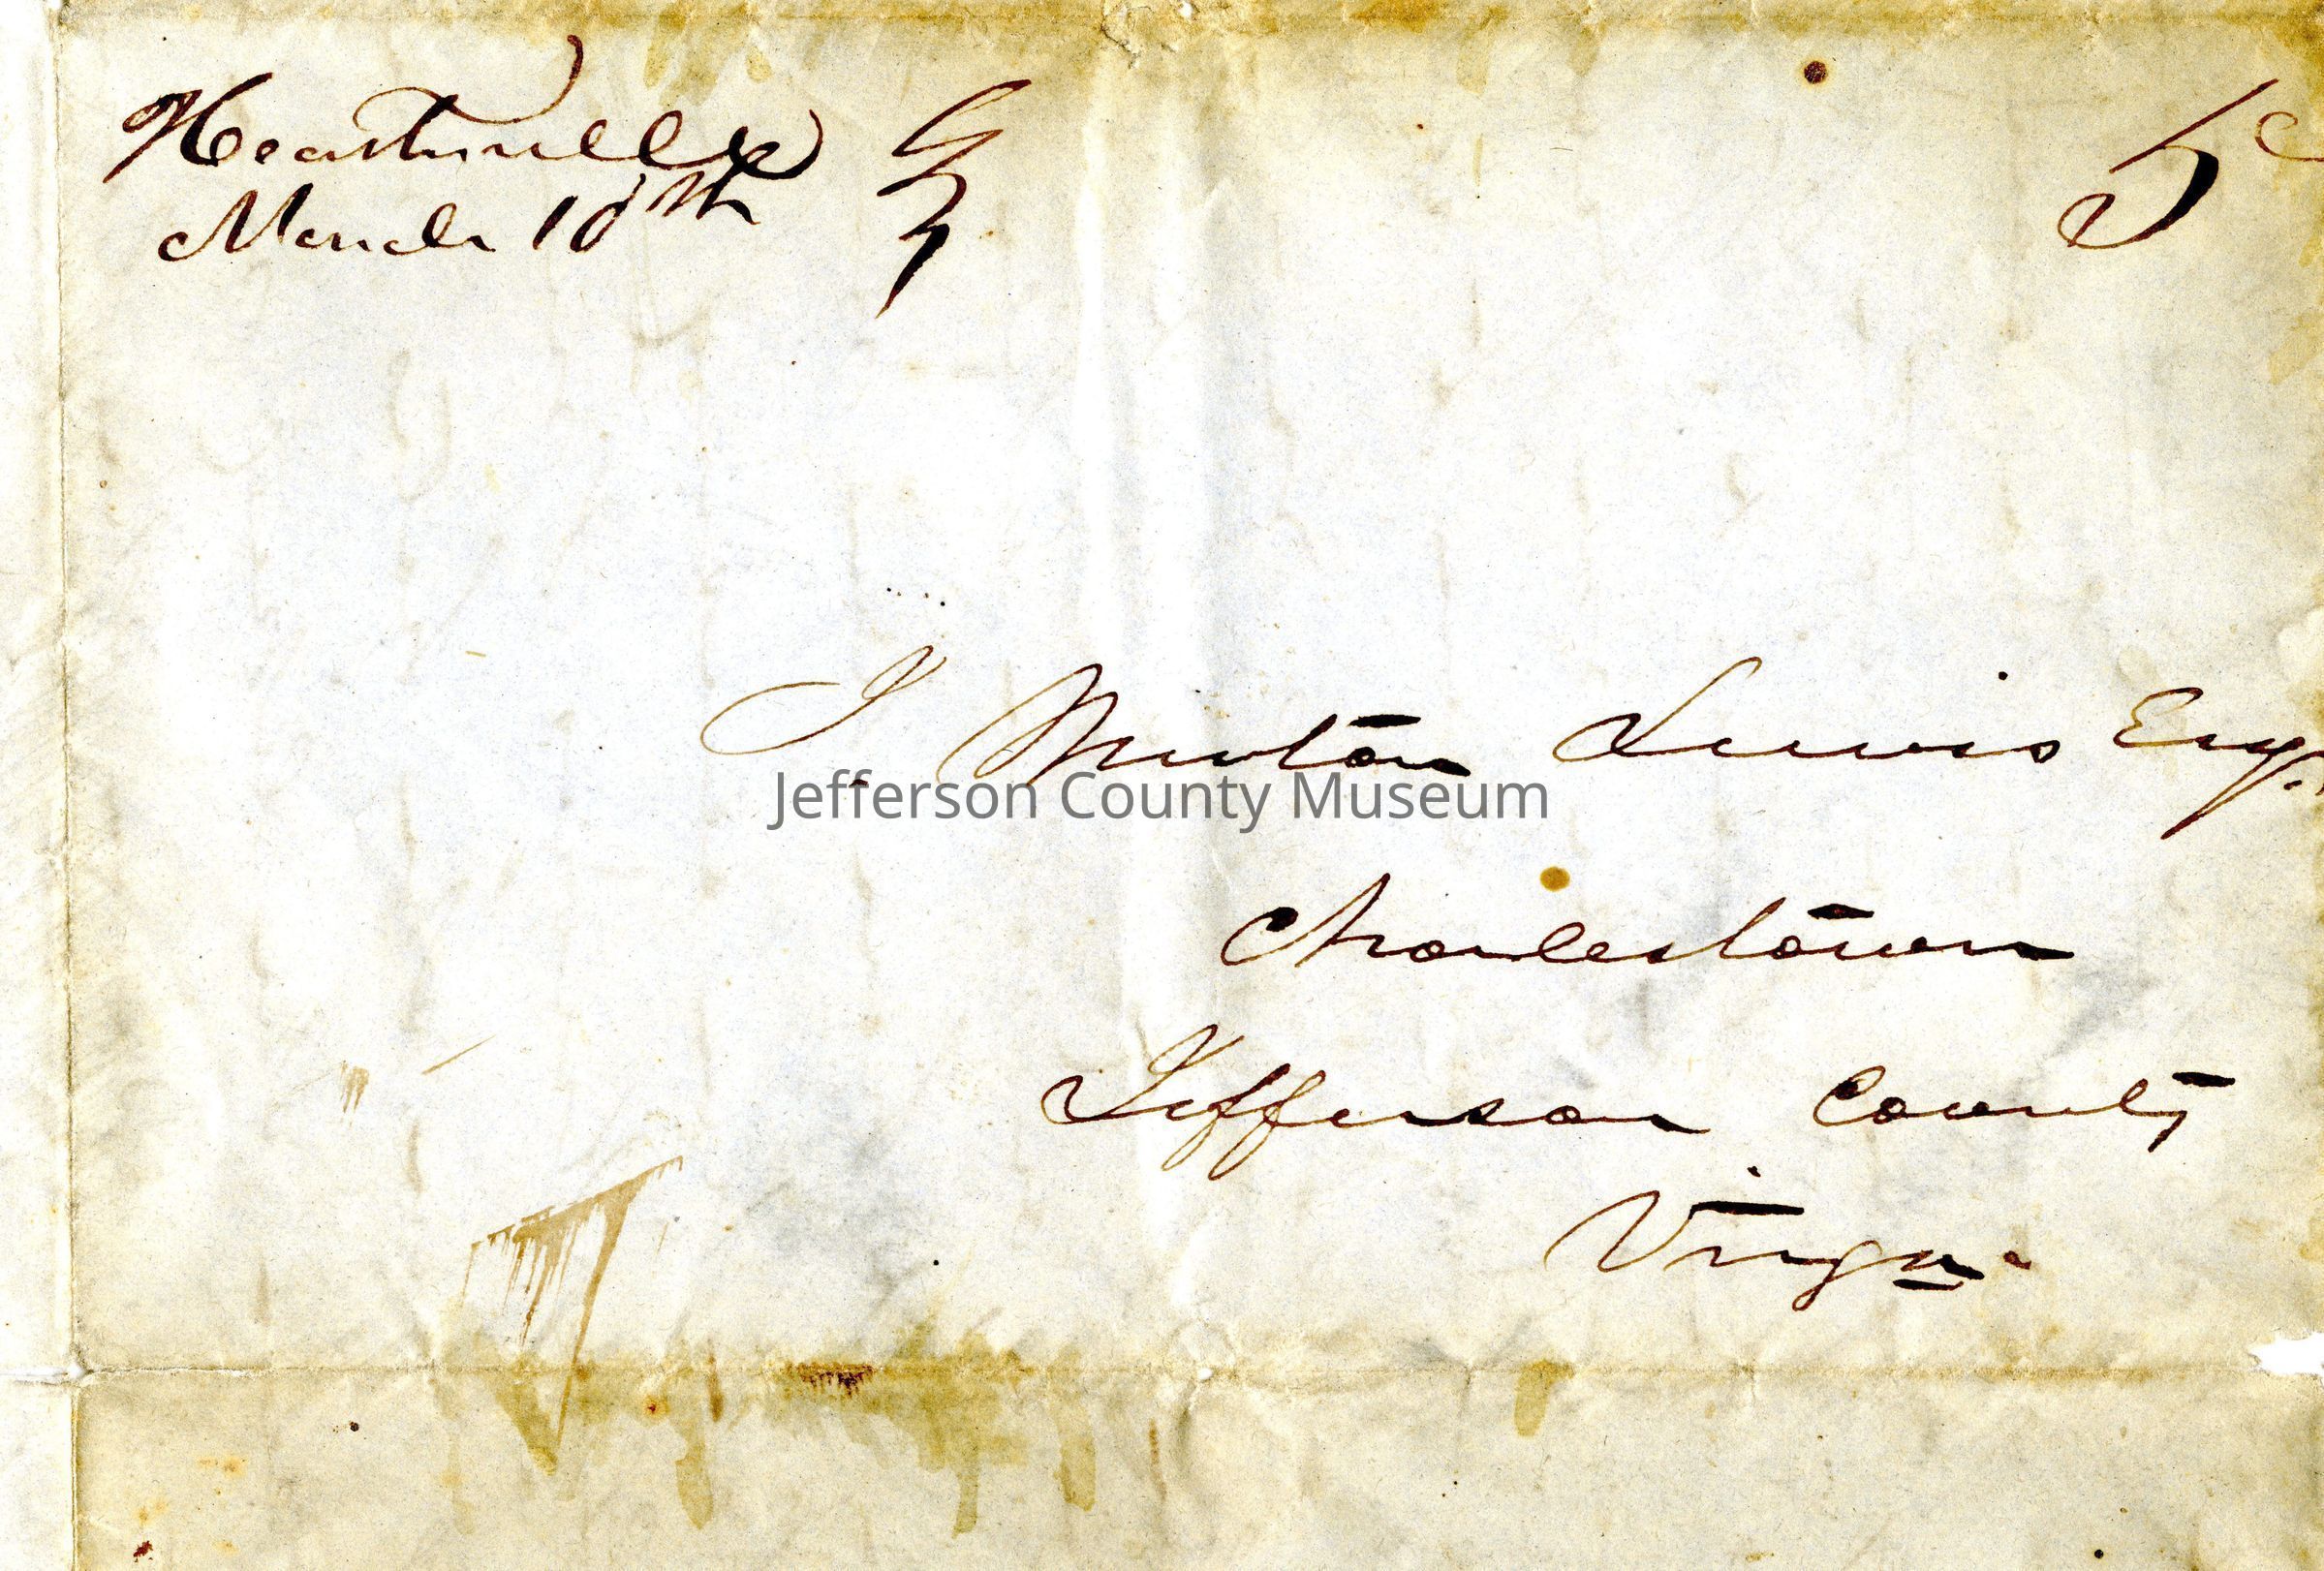 Heathsville
March 10th
5c
Lewis Esqr.
Jefferson County Museum
Charlestown
Jefferson County
Virga.